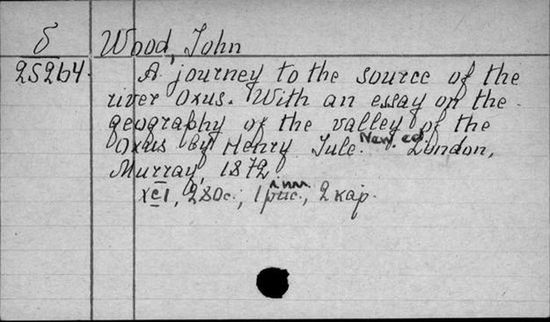 δ Wood, John
25264. A journey to the source of the
river Oxus. With an essay on the
geography of the valley of the
Oxus by Henry Jule. New. ed. London,
Murray, 1872
XCI, 280c., 1 рис., 2 кар.